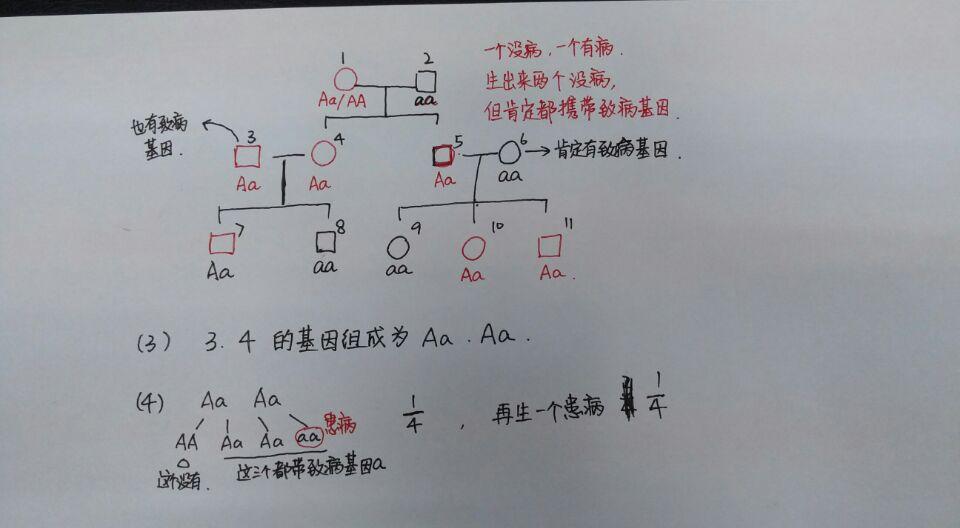 1
2
一个没病，一个有病.
Aa/AA
aa
生出来两个没病，
但肯定都携带致病基因.
也有致病
基因.
3
4
5
6
肯定有致病基因.
Aa
Aa
Aa
aa
7
8
9
10
11
Aa
aa
aa
Aa
Aa.
(3) 3.4 的基因组成为 Aa.Aa.
(4) Aa Aa
1/4 ，再生一个患病 1/4
AA Aa Aa aa 患病
这个没有. 这三个都带致病基因a